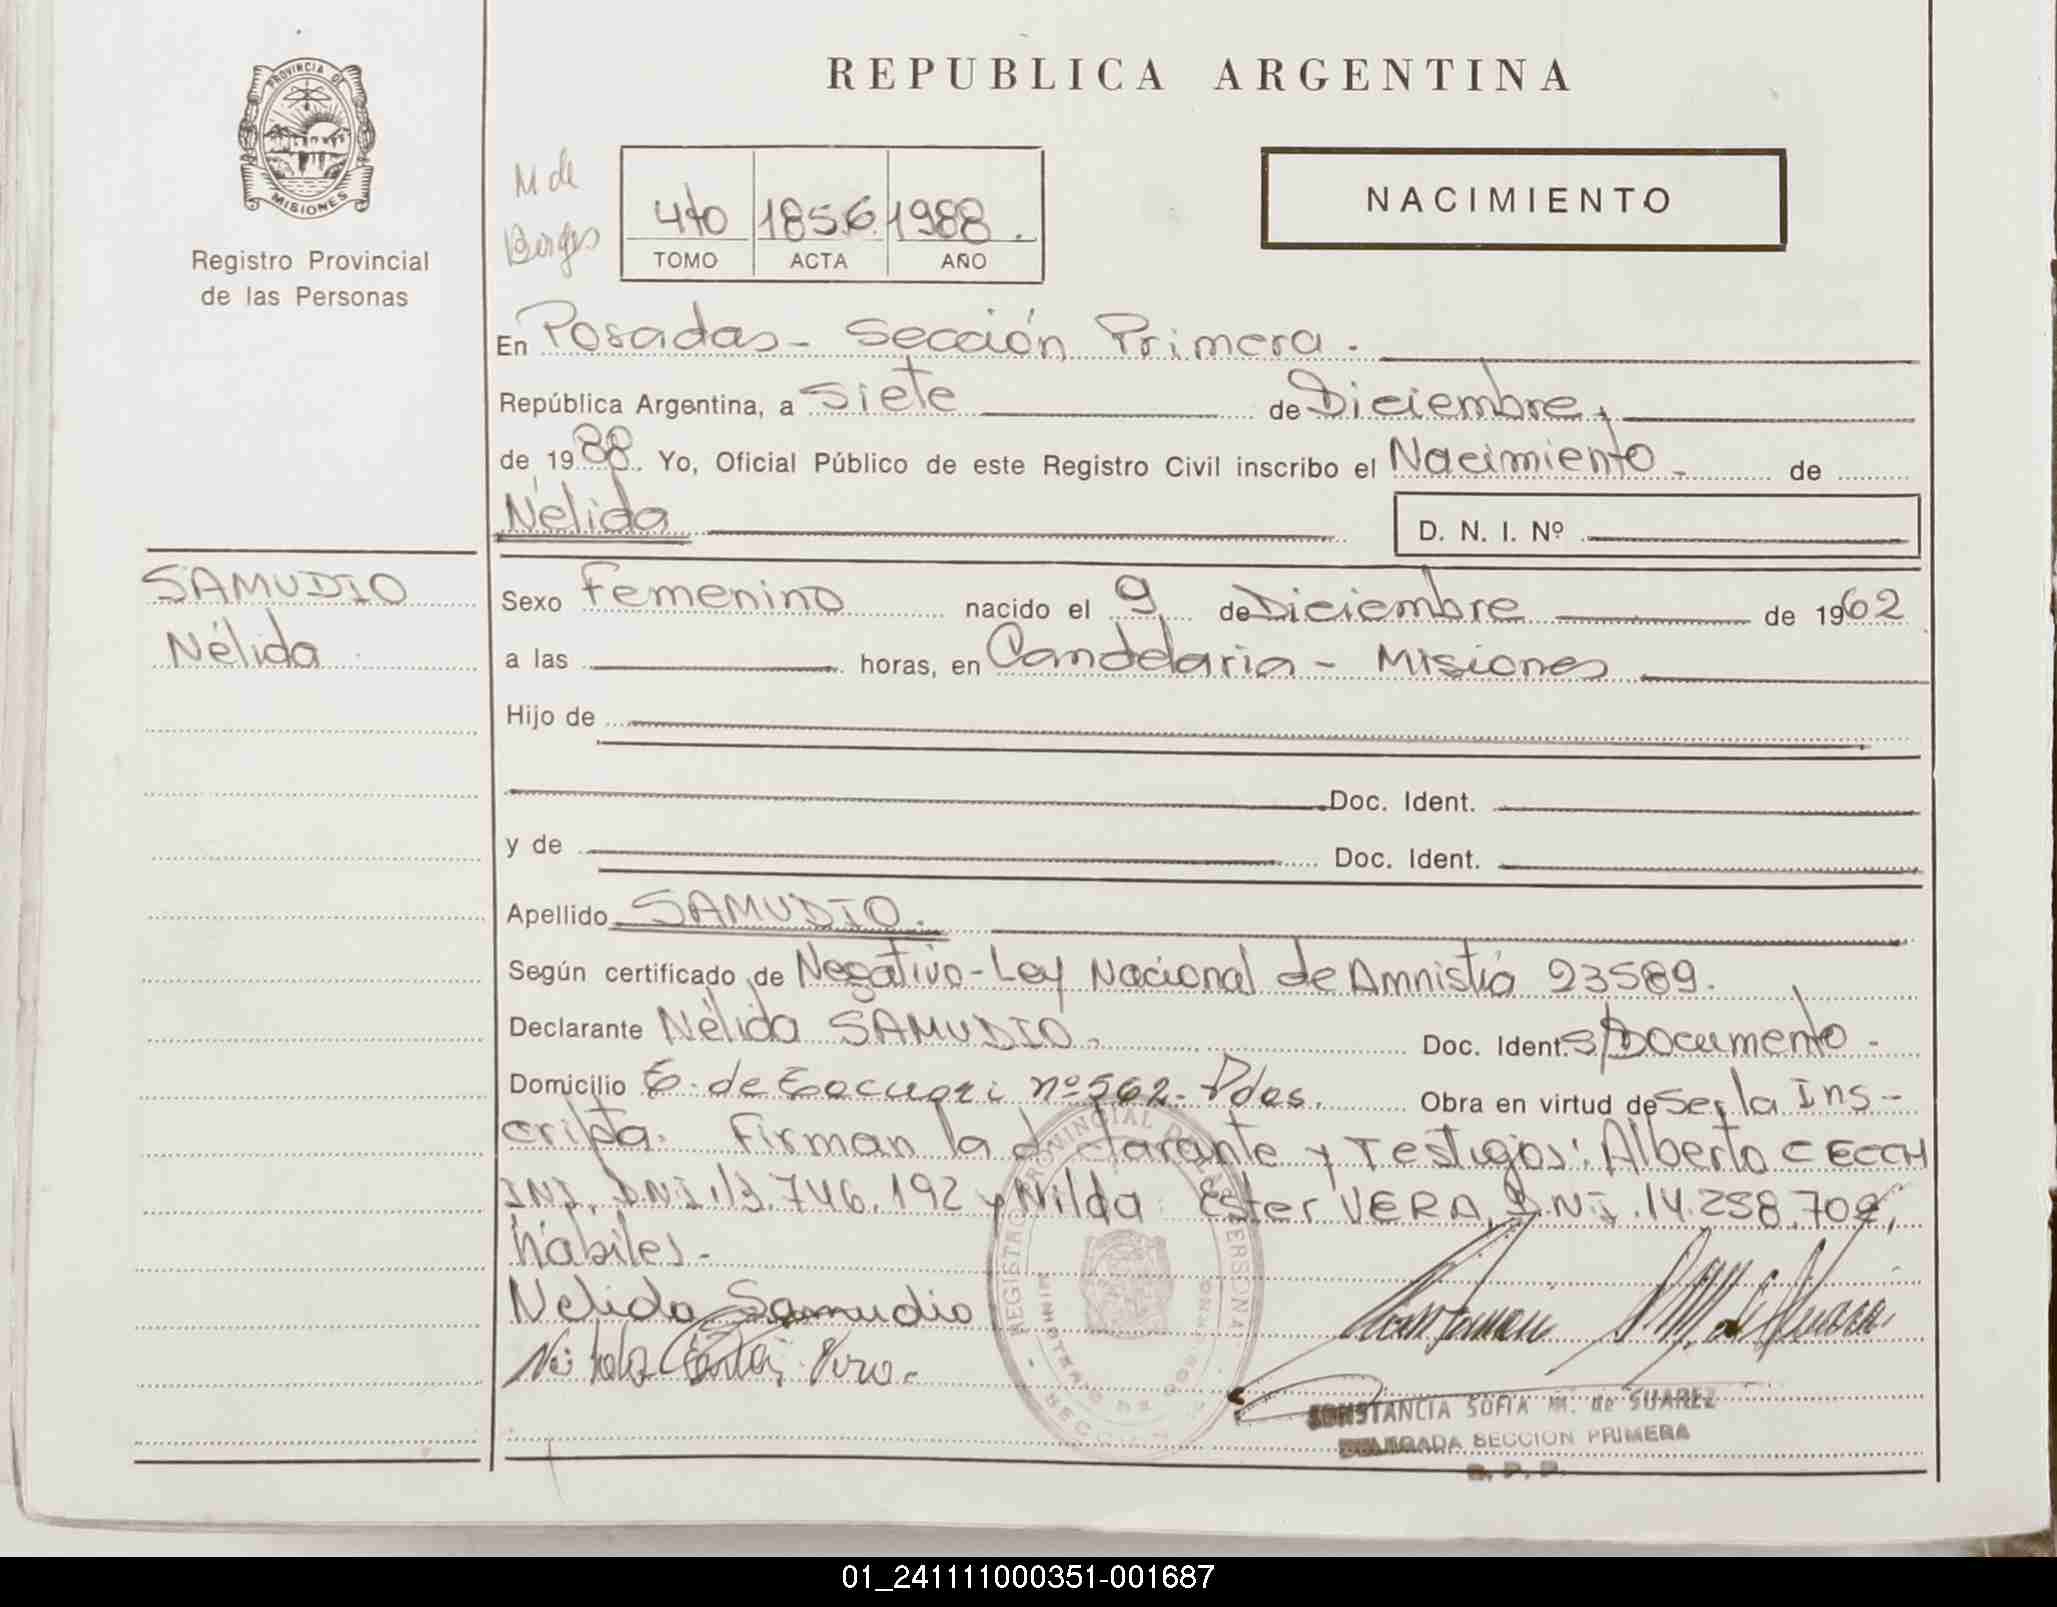 REPUBLICA ARGENTINA
PROVINCIA DE
MISIONES
Registro Provincial
de las Personas
M de
Borges
4to 1856 1988.
TOMO ACTA AÑO
NACIMIENTO
En Posadas - Sección Primera.
República Argentina, a Siete de Diciembre,
de 1988. Yo, Oficial Público de este Registro Civil inscribo el Nacimiento - de
Nélida
D. N. I. Nº
SAMUDIO
Nélida
Sexo Femenino nacido el 9 de Diciembre de 1962
a las horas, en Candelaria - Misiones
Hijo de
Doc. Ident.
y de Doc. Ident.
Apellido SAMUDIO.
Según certificado de Negativo - Ley Nacional de Amnistía 23589.
Declarante Nélida SAMUDIO. Doc. Ident. S/Documento -
Domicilio nº 562 - Pdas. Obra en virtud de Ser la Ins-
cripta. Firman la declarante y Testigos: Alberto CECCH
INI, D.N.I. 13.746.192 y Nilda Ester VERA, D.N.I. 14.258.709,
hábiles -
Nelida Samudio
CONSTANCIA SOFIA M. de SUAREZ
DELEGADA SECCION PRIMERA
R. P. P.
01_241111000351-001687